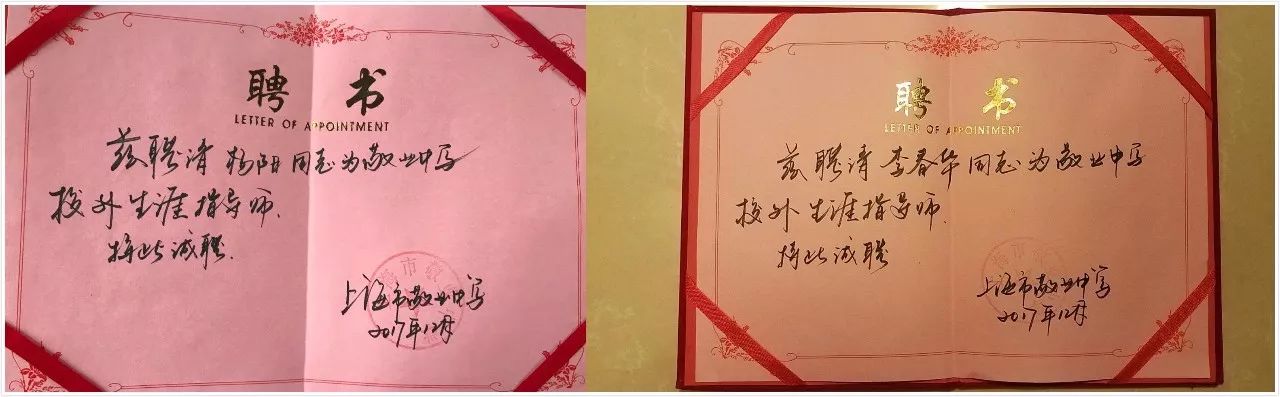 聘 书
LETTER OF APPOINTMENT
兹聘请杨阳同志为敬业中学
校外生涯指导师.
特此诚聘.
上海市敬业中学
2017年12月
聘 书
LETTER OF APPOINTMENT
兹聘请李春华同志为敬业中学
校外生涯指导师.
特此诚聘
上海市敬业中学
2017年12月